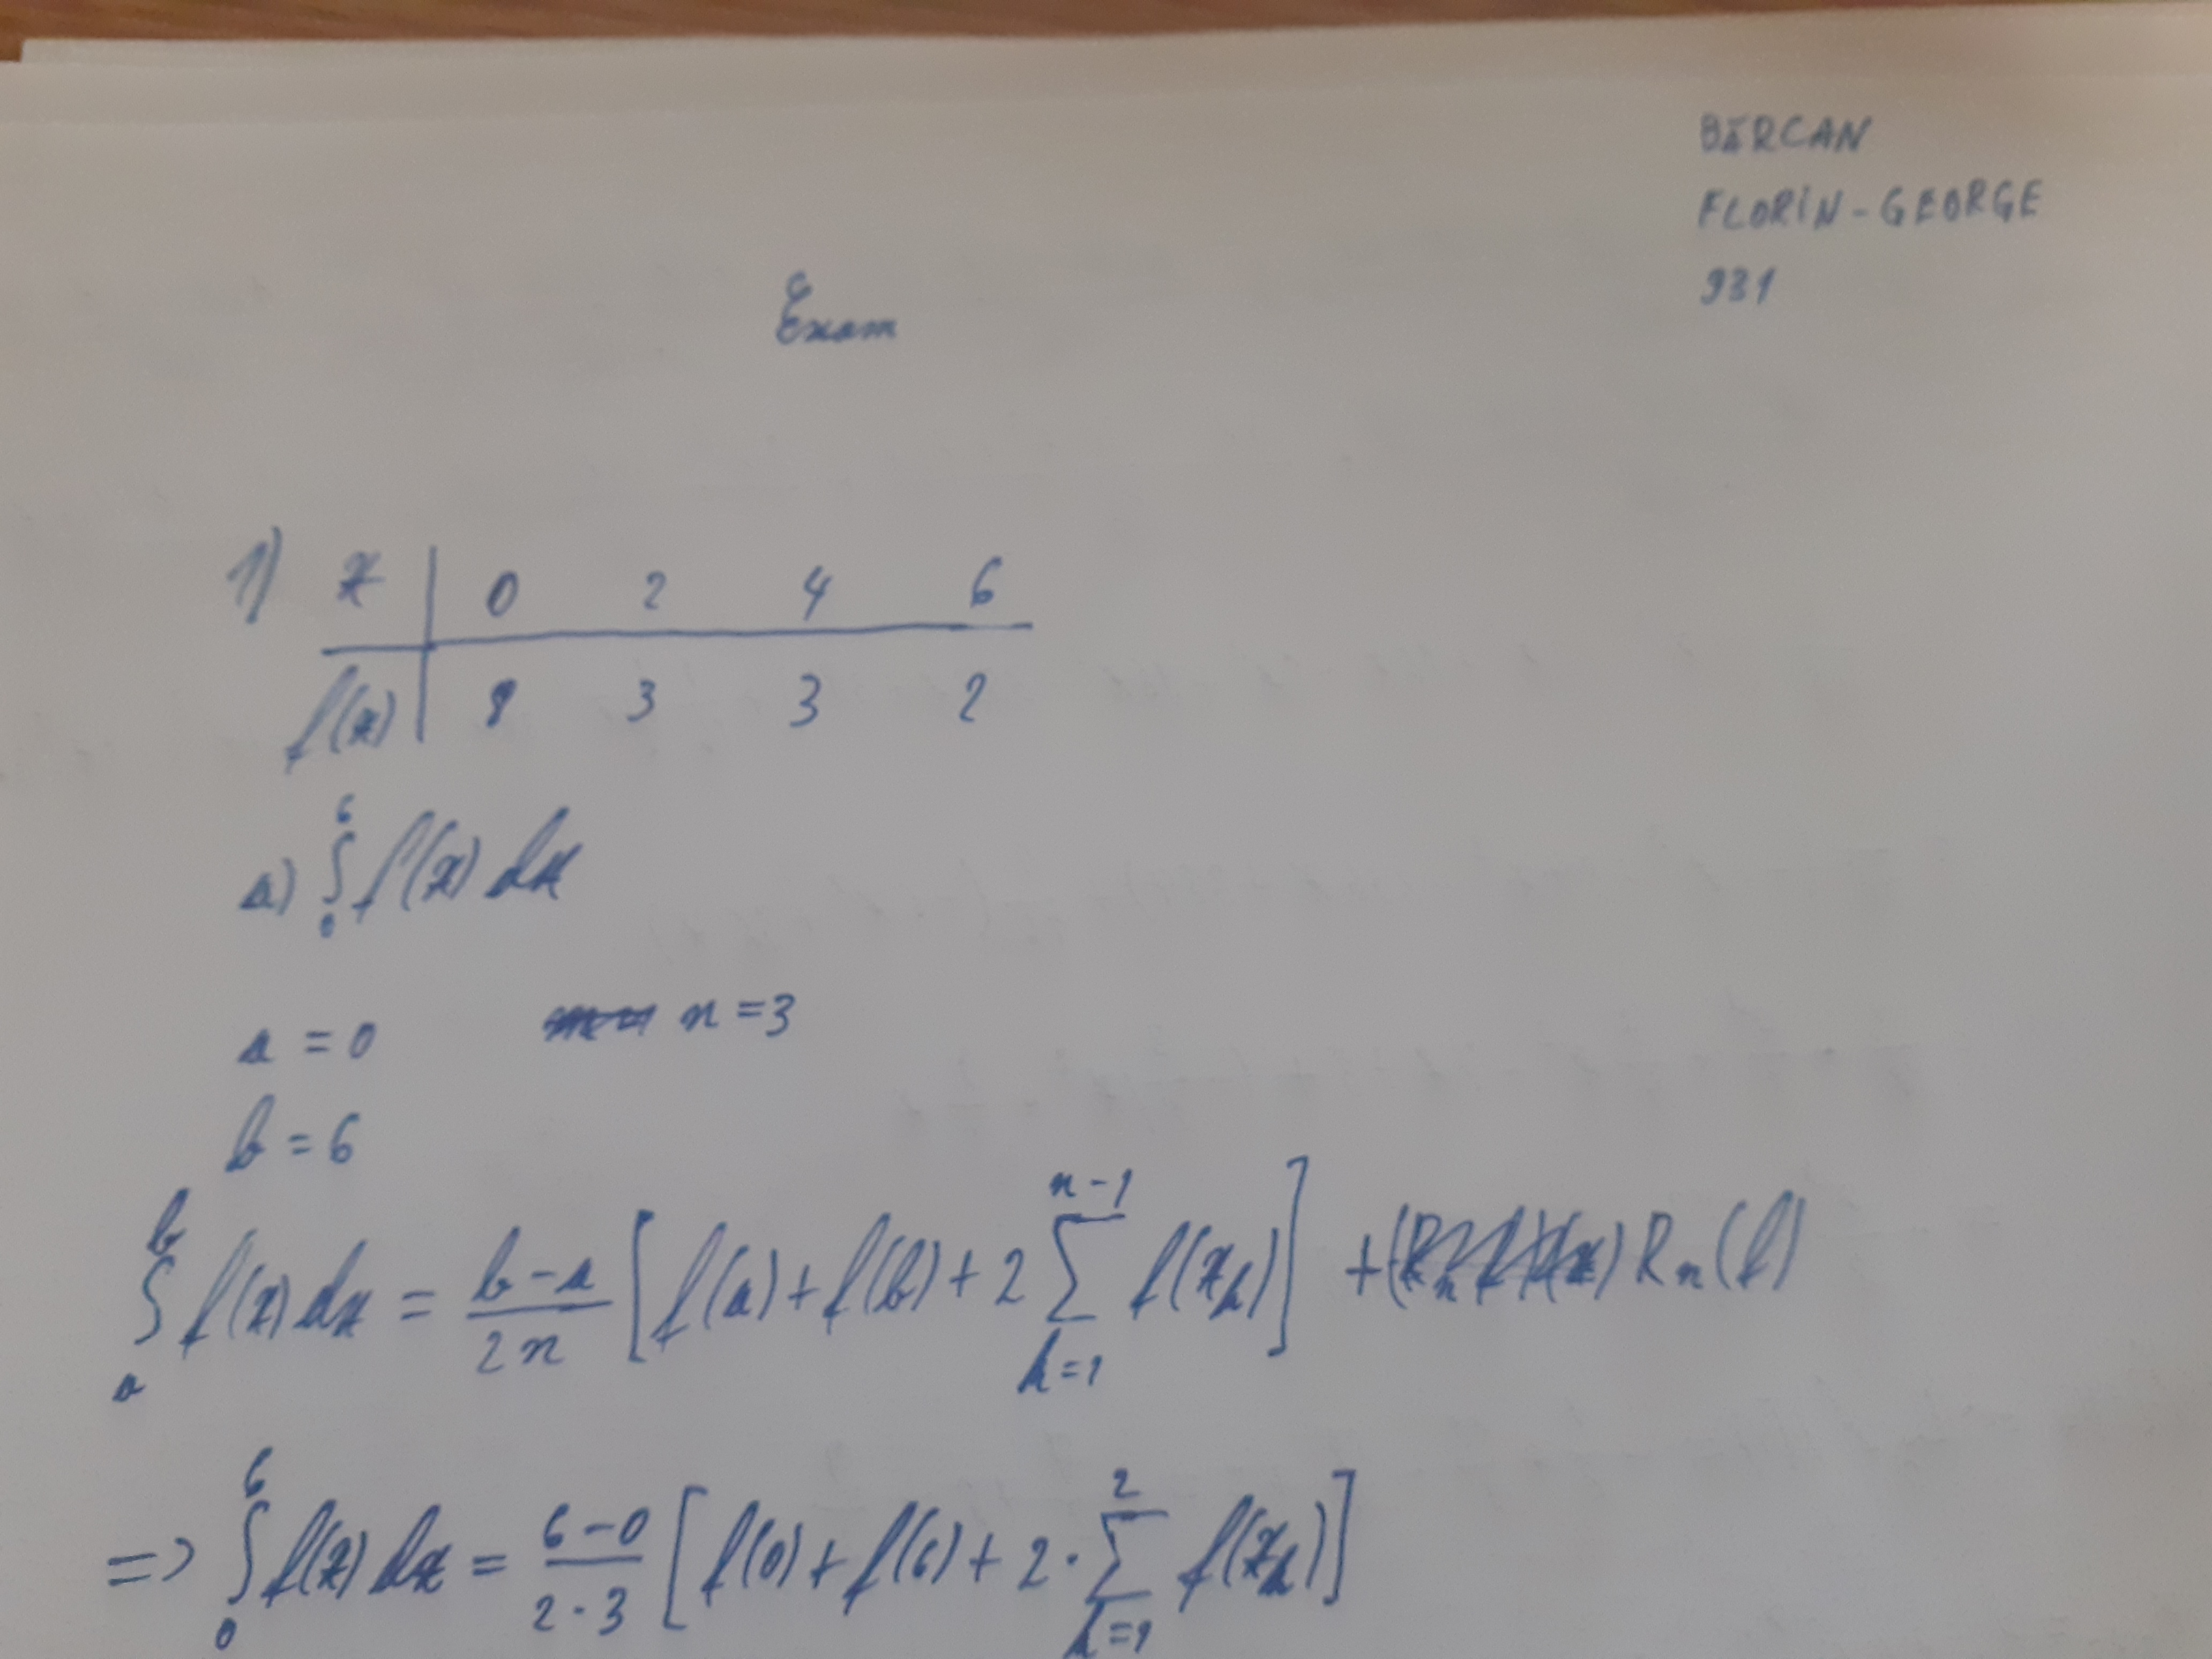 BÂRCAN
FLORIN-GEORGE
931
Exam
1) x | 0 2 4 6
f(x) | 8 3 3 2
a) ∫₀⁶ f(x) dx
a = 0 n = 3
b = 6
∫ₐᵇ f(x) dx = (b-a)/(2n) [f(a) + f(b) + 2 ∑_{k=1}^{n-1} f(x_k)] + R_n(f)
=> ∫₀⁶ f(x) dx = (6-0)/(2·3) [f(0) + f(6) + 2 · ∑_{k=1}^{2} f(x_k)]